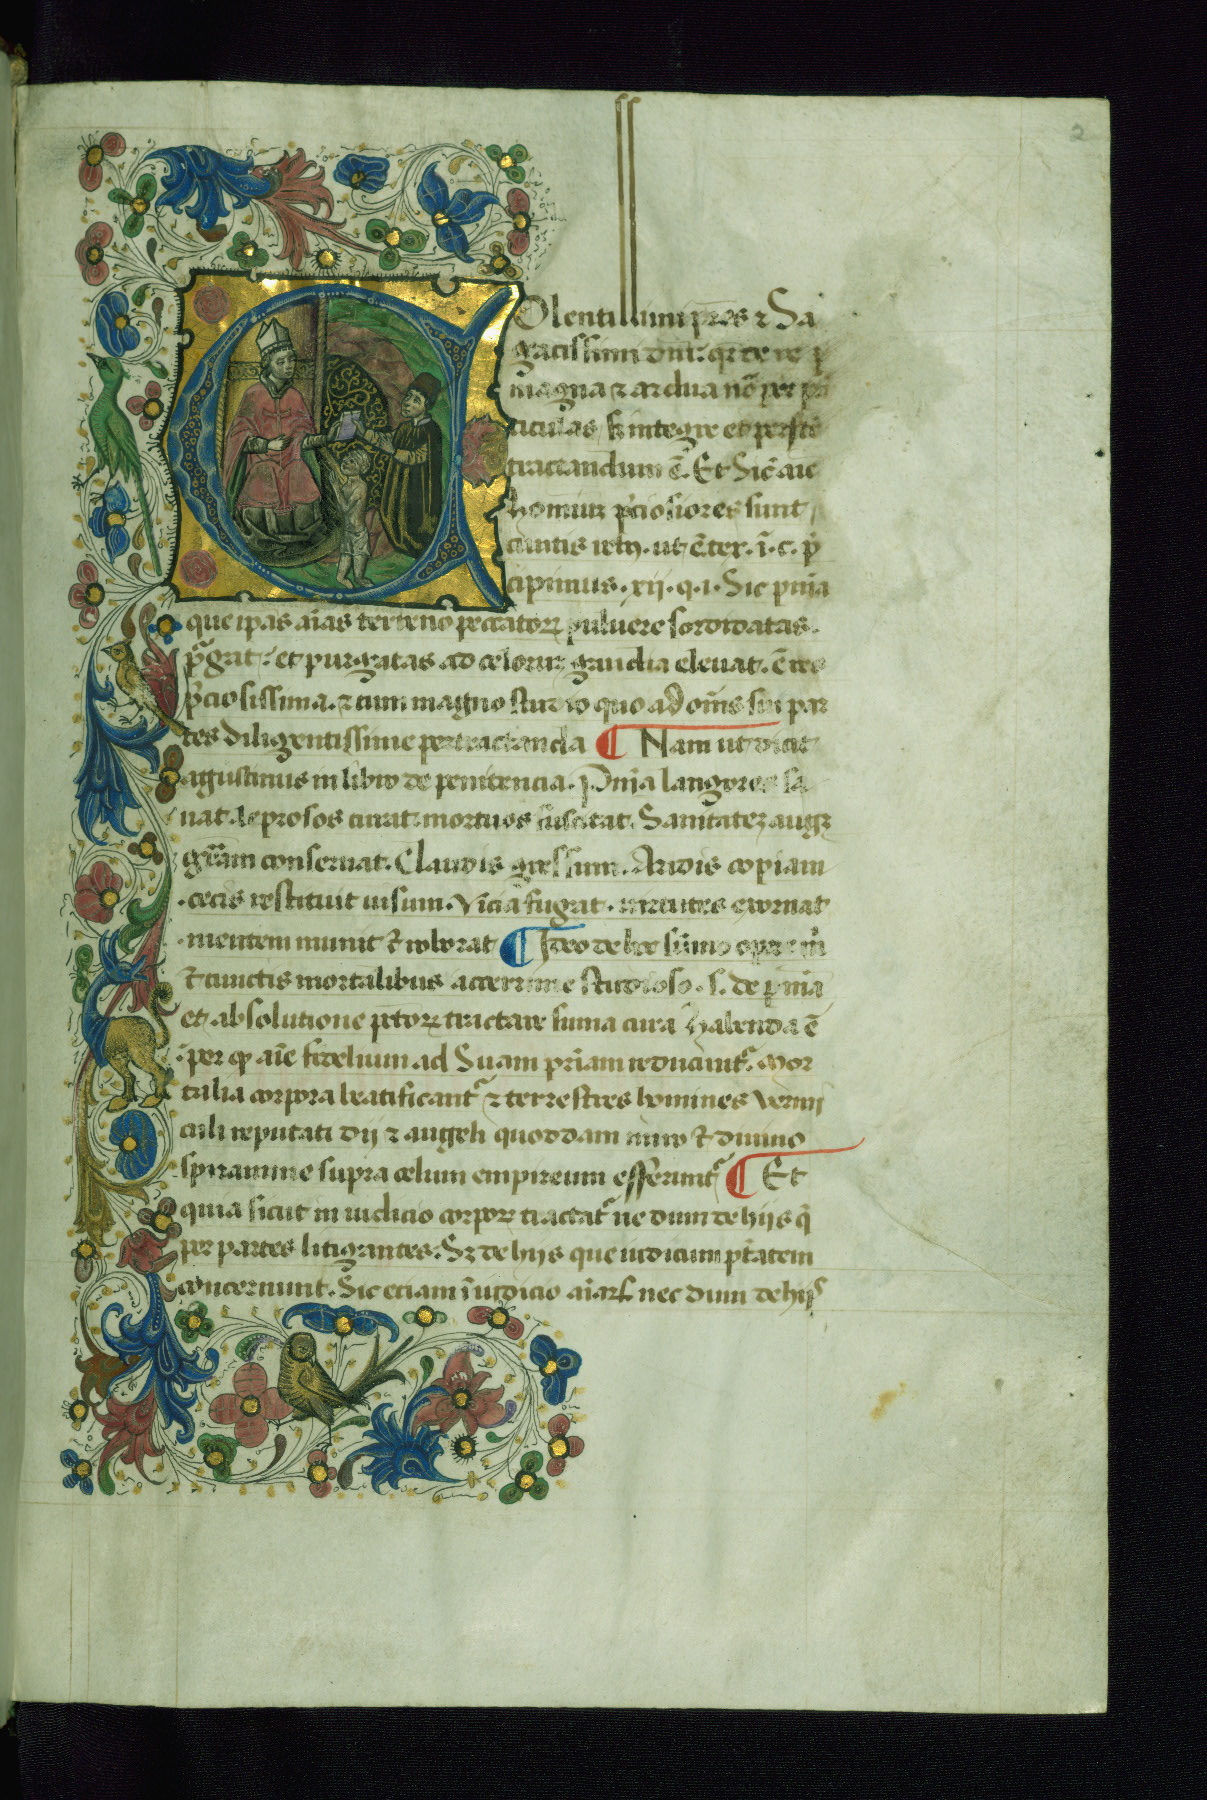 2
Olentissimi pr̄es ⁊ Sa
gacissimi dn̄i: qr̄ de re p̱
magna ⁊ ardua nō per p̱
ticulas sꝫ integre et perfcē
tractandum ē. Et Sic̄ aīe
hominꝫ p̄ciosiores sunt
cunctis reb9. ut ē tex. ī. c. p̄
cipimus. xij. q. i. Sic pn̄ia
que ipas aīas terreno peccatoꝝ puluere sordidatas.
p̱grat: et purgatas ad celoruꝫ gaudia eleuat. ē res
p̄ciosissima. ⁊ cum magno studio quo ad om̄s sui par
tes diligentissime pertractanda ¶ Nam ut dicit
agustinus in libro de penitencia. Pn̄ia langores sa
nat. leprosos curat. mortuos suscitat. Sanitateꝫ augꝫ
gr̄am conseruat. Claudis gressum. Aridis copiam
cecis restituit uisum. Vicia fugat. uirtutes exornat
mentem munit ⁊ roborat ¶ Ideo de hoc sūmo opere in
⁊ cunctis mortalibus accerrime studioso. s. de pn̄ia
et absolutione pc̄toꝝ tractare suma cura habenda ē
per qͣ aīe fidelium ad Suam pr̄iam reducunt̄. mor
talia corpora beatificant̄ ⁊ terrestres homines vermi
culi reputati dij ⁊ angeli quoddam miro ⁊ diuino
spiramine supra celum empireum efferunt̄ ¶ Et
quia sicut in iudicio corpoꝝ tractat̄ ne dum de hijs q̄
per partes litigantes. Sꝫ de hijs que iudicum ptātem
concernunt. Sic etiam ī iudicio aīarꝫ nec dum de hijs